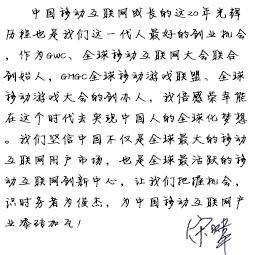 中国移动互联网成长的这20年光辉
历程也是我们这一代人最好的创业机会
，作为GWC、全球移动互联网大会联合
创始人，GMGC全球移动游戏联盟、全球
移动游戏大会的创办人，我倍感荣幸能
在这个时代去实现中国人的全球化梦想
。我们坚信中国不仅是全球最大的移动
互联网用户市场，也是全球最活跃的移
动互联网创新中心，让我们把握机会，
识时务者为俊杰，为中国移动互联网产
业添砖加瓦！
宋炜